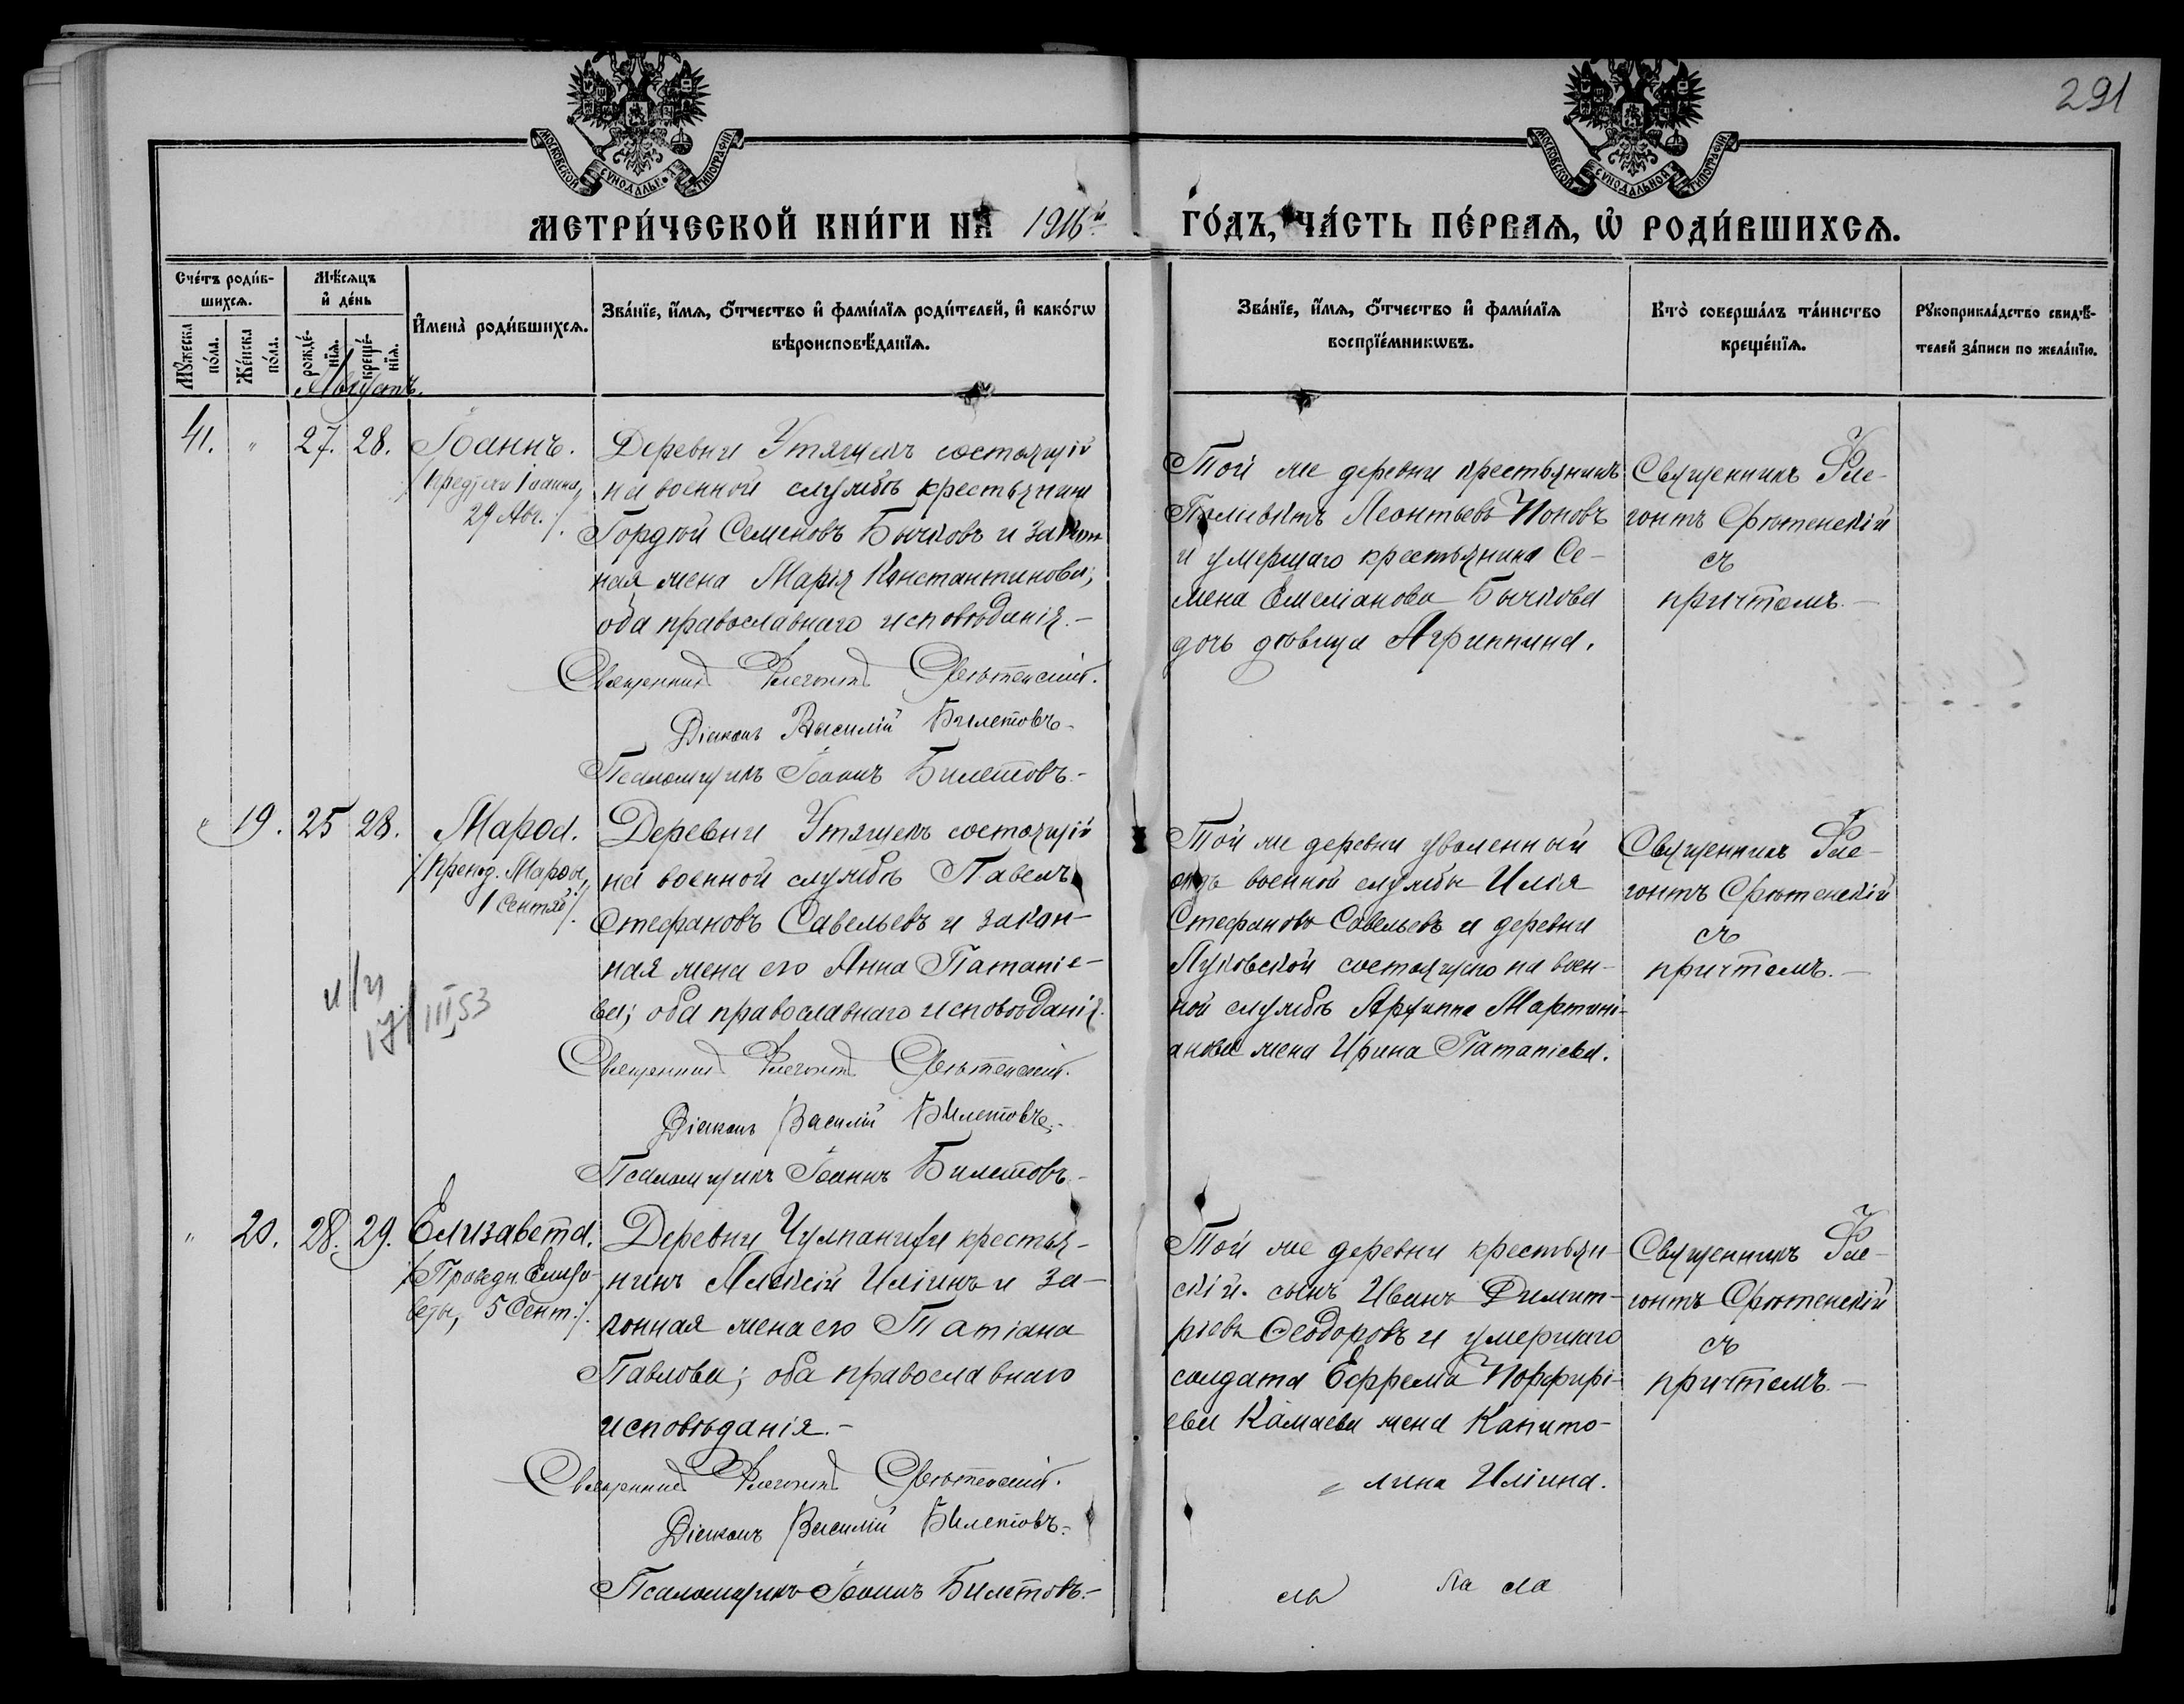 291
МОСКОВСКОЙ СѴНОДАЛЬНОЙ ТИПОГРАФІИ
МОСКОВСКОЙ СѴНОДАЛЬНОЙ ТИПОГРАФІИ
МЕТРИ́ЧЕСКОЙ КНИ́ГИ НА 1916й
ГО́ДЪ, ЧА́СТЬ ПЕ́РВАѦ, Ѡ҆ РОДИ́ВШИХСѦ.
Сче́тъ роди́в-
шихсѧ.
Мꙋжеска по́ла.
Же́нска по́ла.
Мѣ́сѧцъ
и҆ де́нь
рожде́-
нїѧ.
креще́-
нїѧ.
И҆мена̀ роди́вшихсѧ.
Зва́нїе, и҆́мѧ, ѻ҆́тчество и҆ фами́лїѧ роди́телей, и҆ како́гѡ
вѣроисповѣ́данїѧ.
Зва́нїе, и҆́мѧ, ѻ҆́тчество и҆ фами́лїѧ
воспрїе́мникѡвъ.
Кто̀ соверша́лъ та́инство
креще́нїѧ.
Рꙋкоприкла́дство свидѣ́-
телей за́писи по жела́нїю.
Августъ.
41. " 27. 28. Іоаннъ.
/: Предтечи Іоанна,
29 Авг. :/.
Деревни Утяшекъ состоящій
на военной службѣ крестьянинъ
Гордѣй Семеновъ Бычковъ и закон-
ная жена Марія Константинова;
оба православнаго исповѣданія.-
Священникъ Флегонтъ Срѣтенскій.
Діаконъ Василій Билетовъ.-
Псаломщикъ Іоаннъ Билетовъ.-
Той же деревни крестьянинъ
Леонтьевъ Іоновъ
и умершаго крестьянина Се-
мена Емеліанова Бычкова
дочь дѣвица Агриппина.
Священникъ Фле-
гонтъ Срѣтенскій
съ
причтомъ.-
" 19. 25 28. Марѳа.
/: Препод. Марѳы,
1 Сентяб :/.
Деревни Утяшекъ состоящій
на военной службѣ Павелъ
Стефановъ Савельевъ и закон-
ная жена его Анна Патапіе-
ва; оба православнаго исповѣданія.
Священникъ Флегонтъ Срѣтенскій.
Діаконъ Василій Билетовъ.-
Псаломщикъ Іоаннъ Билетовъ.-
Той же деревни уволенный
отъ военной службы Илія
Стефановъ Савельевъ и деревни
состоящаго на воен-
ной службѣ Архиппа Мартині-
анова жена Ирина Патапіева.
Священникъ Фле-
гонтъ Срѣтенскій
съ
причтомъ.-
17/III 53
" 20. 28. 29. Елизавета.
/: Праведн. Елиза-
веты, 5 Сент. :/.
Деревни Чулпанихи крестья-
нинъ Алексій Иліинъ и за-
конная жена его Татіана
Павлова; оба православнаго
исповѣданія.-
Священникъ Флегонтъ Срѣтенскій.
Діаконъ Василій Билетовъ.-
Псаломщикъ Іоаннъ Билетовъ.-
Той же деревни крестьян-
скій сынъ Иванъ Димит-
ріевъ Ѳеодоровъ и умершаго
солдата Ефрема Порфирі-
ева Камаева жена Капито-
лина Иліина.
ла ла
Священникъ Фле-
гонтъ Срѣтенскій
съ
причтомъ.-